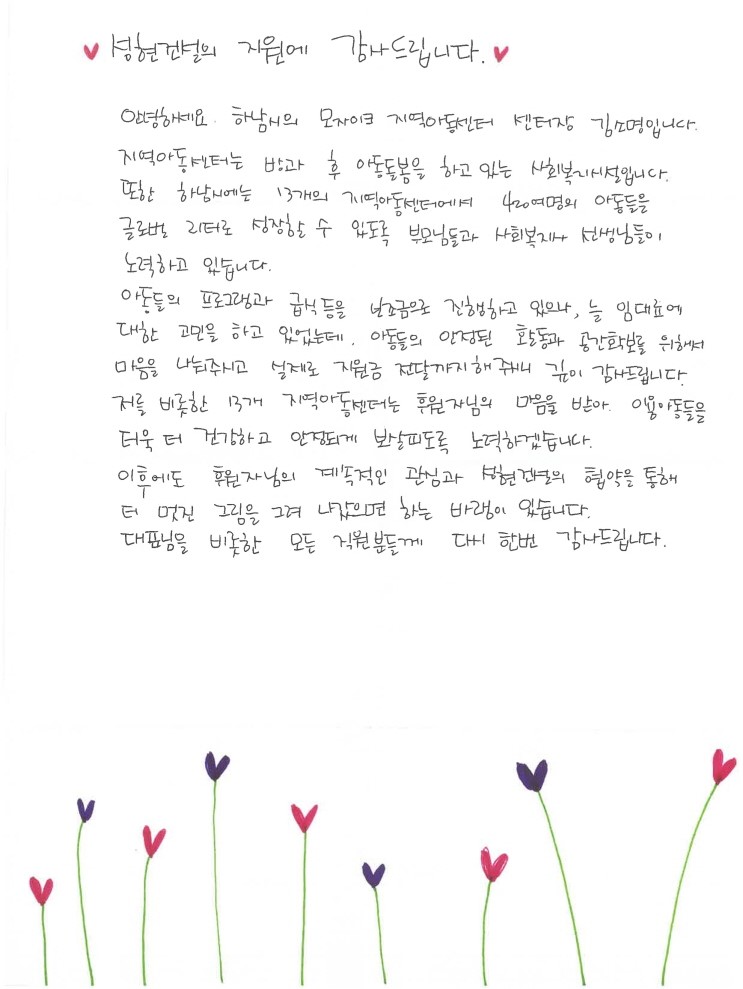 성현건설의 지원에 감사드립니다.
안녕하세요. 하남시의 모자이크 지역아동센터 센터장 김소명입니다.
지역아동센터는 방과 후 아동돌봄을 하고 있는 사회복지시설입니다.
또한 하남시에는 13개의 지역아동센터에서 420여명의 아동들을
글로벌 리더로 성장할 수 있도록 부모님들과 사회복지사 선생님들이
노력하고 있습니다.
아동들의 프로그램과 급식 등을 보조금으로 진행하고 있으나, 늘 임대료에
대한 고민을 하고 있었는데, 아동들의 안정된 활동과 공간확보를 위해서
마음을 나눠주시고 실제로 지원금 전달까지 해주셔서 깊이 감사드립니다.
저를 비롯한 13개 지역아동센터는 후원자님의 마음을 받아. 이용아동들을
더욱 더 건강하고 안정되게 보살피도록 노력하겠습니다.
이후에도 후원자님의 계속적인 관심과 성현건설의 협약을 통해
더 멋진 그림을 그려 나갔으면 하는 바램이 있습니다.
대표님을 비롯한 모든 직원분들께 다시 한번 감사드립니다.